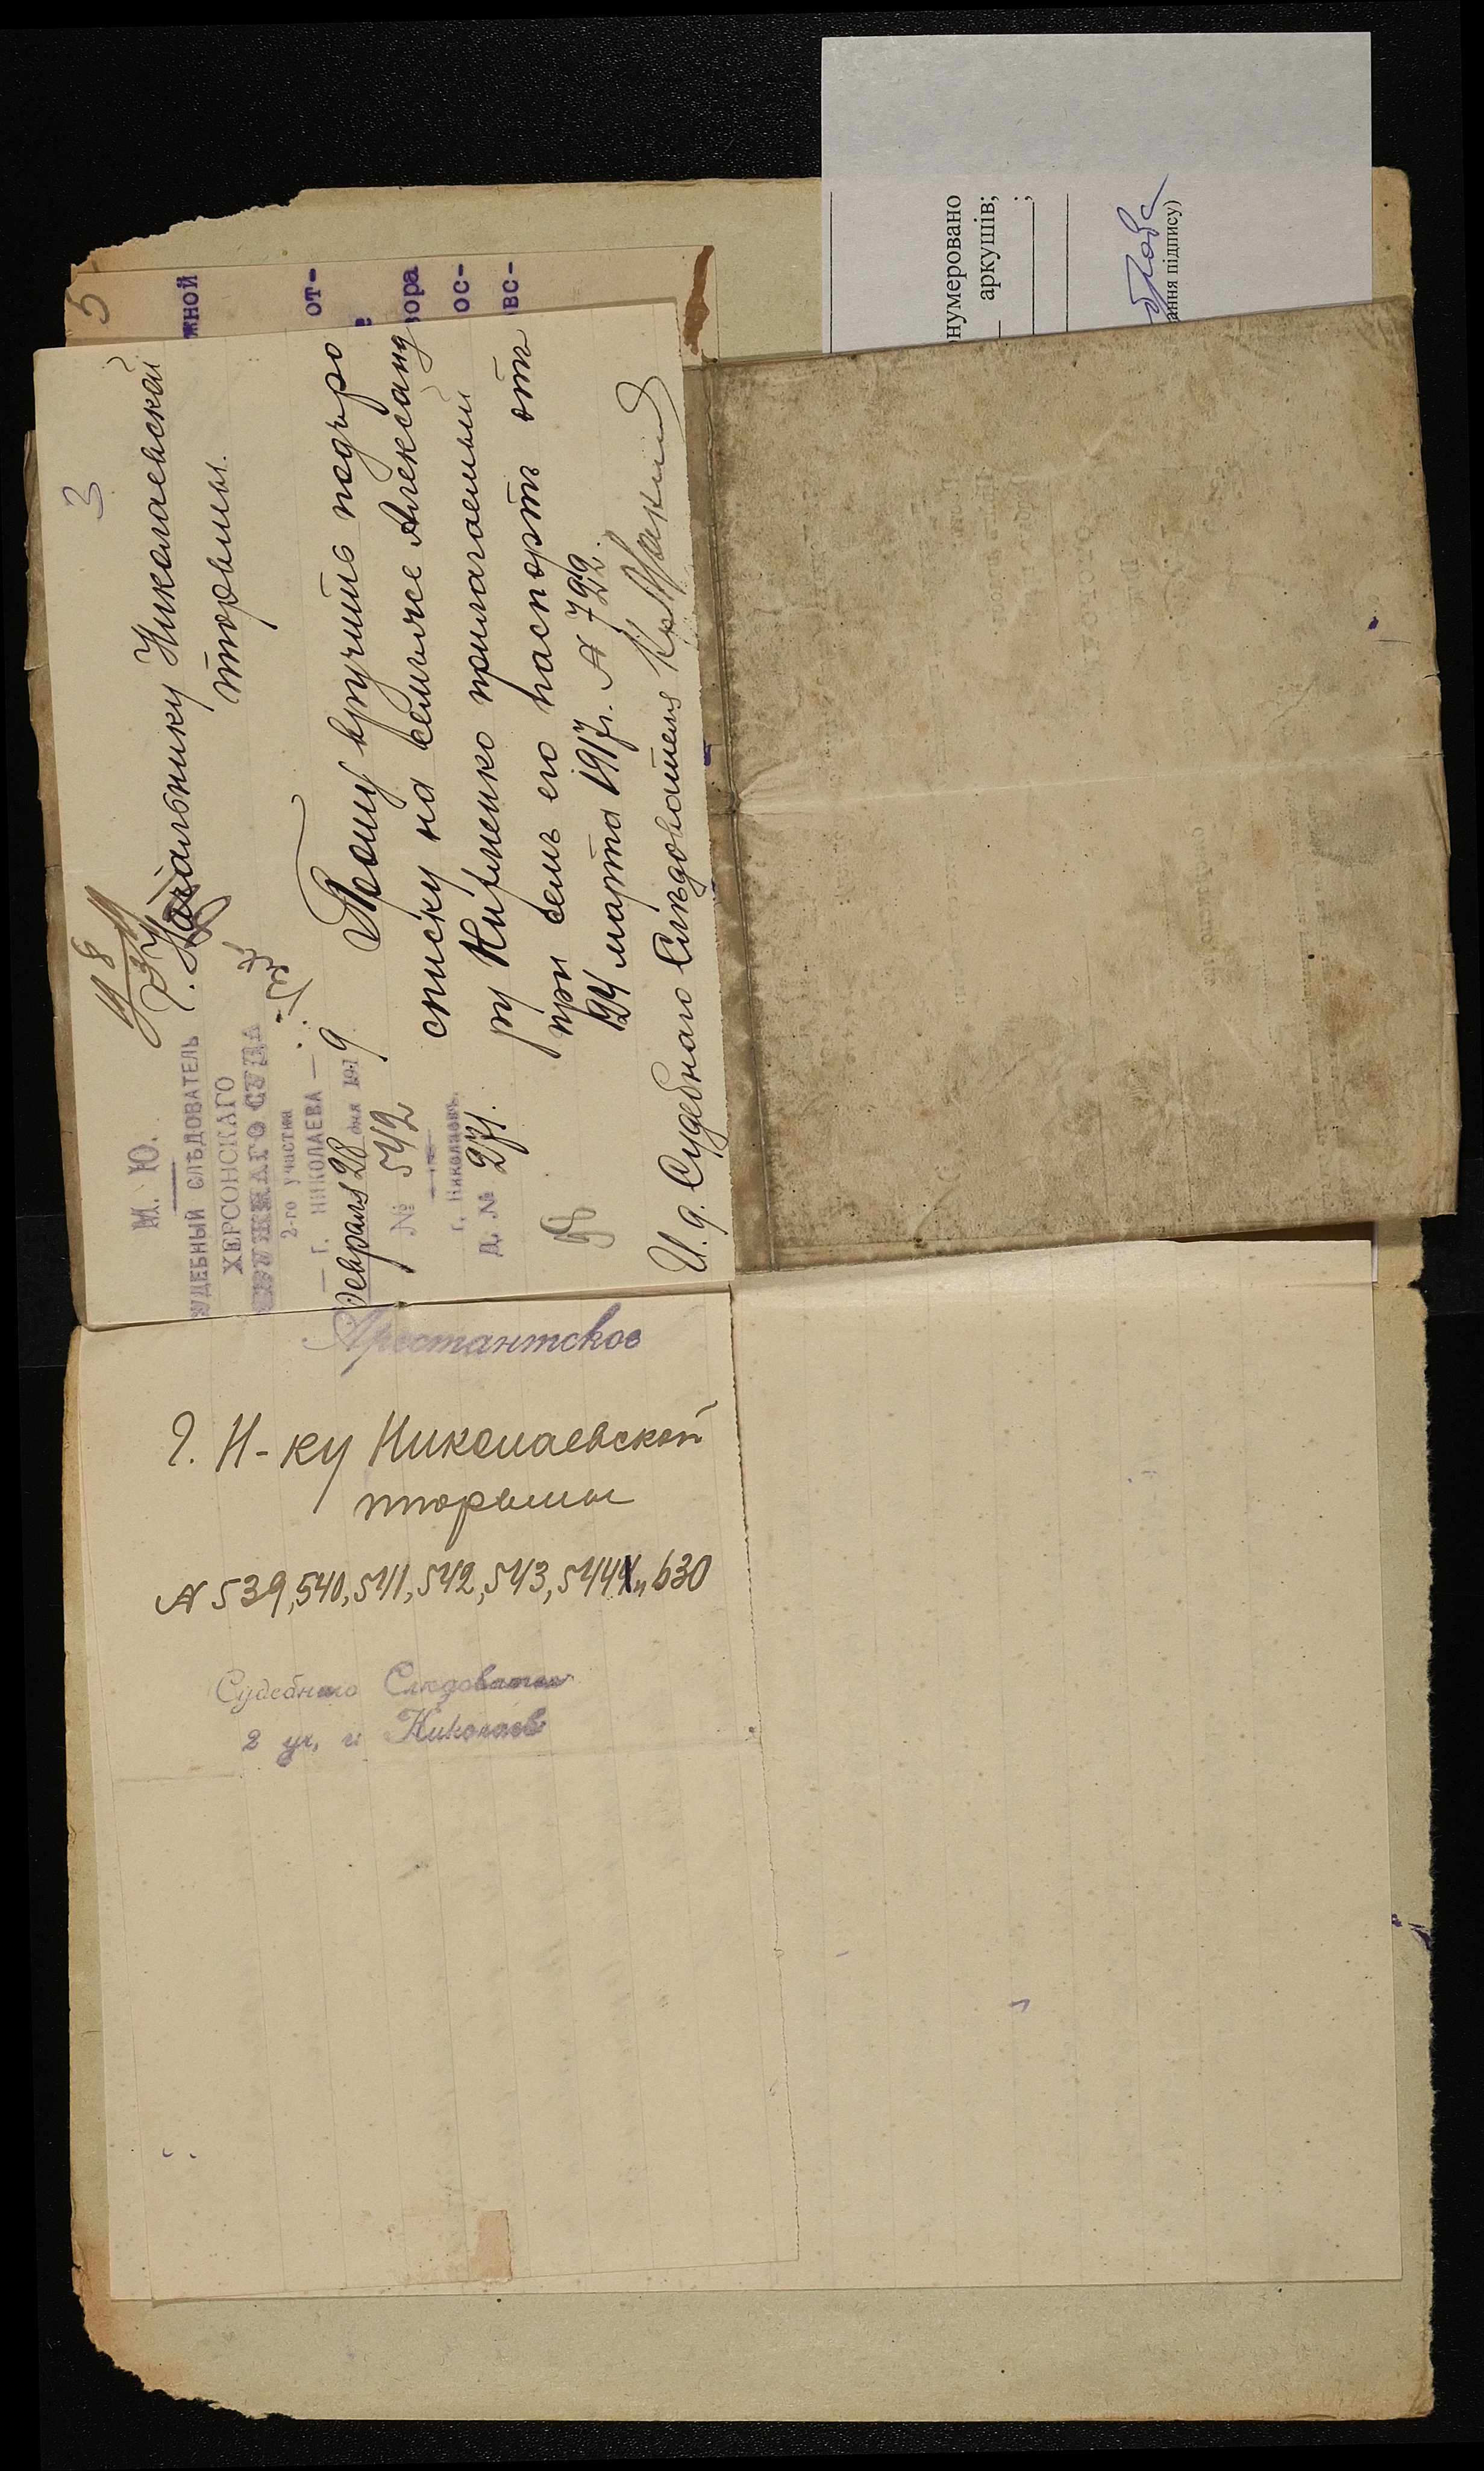 3
М. Ю.
СУДЕБНЫЙ СЛѢДОВАТЕЛЬ
ХЕРСОНСКАГО
ОКРУЖНАГО СУДА
2-го участка
— Г. НИКОЛАЕВА —
Февраля 28 дня 1919
№ 542
г. Николаевъ.
Д. № 271.
Г. Начальнику Николаевской
тюрьмы.
Прошу вручить подъ ро
списку на семъ же Александ
ру Кириенко прилагаемый
при семъ его паспортъ отъ
24 марта 1917 г. № 722.
И. д. Судебнаго Слѣдователя
5
жной
от-
е
вора
ос-
вс-
нумеровано
аркушів;
;
ання підпису)
Арестантское
Г. Н-ку Николаевской
тюрьмы
№ 539, 540, 541, 542, 543, 544 и 630
Судебнаго Следователя
2 уч. г. Николаев